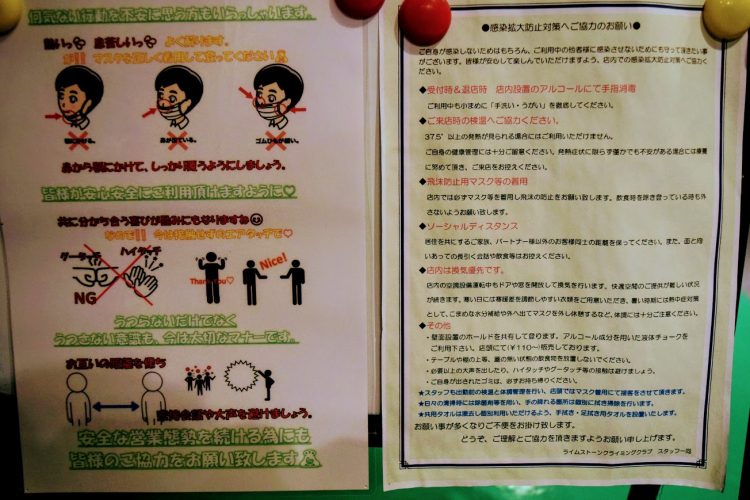 何気ない行動を不安に思う方もいらっしゃいます。
よく解ります。
マスクを正しく着用して登ってください
顎にかける。
鼻が出ている。
ゴムひもが緩い。
鼻から顎にかけて、しっかり覆うようにしましょう。
皆様が安心安全にご利用頂けますように♡
共に分かち合う喜びが励みにもなりますね
なので!! 今は接触せずのエアタッチで♡
グータッチ
ハイタッチ
NG
Thank you♡
Nice!
うつらないだけでなく
うつさない意識も、今は大切なマナーです。
お互いの距離を保ち
会話や大声を避けましょう。
安全な営業態勢を続ける為にも
皆様のご協力をお願い致します
●感染拡大防止対策へご協力のお願い●
ご自身が感染しないためはもちろん、ご利用中の他者様に感染させないためにも守って頂きたい事
がございます。皆様が安心して楽しんでいただけますよう、店内での感染拡大防止対策へご協力く
ださい。
◆受付時&退店時 店内設置のアルコールにて手指消毒
ご利用中も小まめに「手洗い・うがい」を徹底してください。
◆ご来店時の検温へご協力ください。
37.5°以上の発熱が見られる場合にはご利用いただけません。
ご自身の健康管理には十分ご留意ください。発熱症状に限らず僅かでも不安がある場合には療養
に努めて頂き、ご来店をお控えください。
◆飛沫防止用マスク等の着用
店内では必ずマスク等を着用し飛沫の防止をお願い致します。飲食時を除き登っている時も外
さないようお願い致します。
◆ソーシャルディスタンス
居住を共にするご家族、パートナー様以外のお客様同士の距離を保ってください。また、面と向
いあっての長引く会話や飲食等はお控えください。
◆店内は換気優先です。
店内の空調設備運転中もドアや窓を開放して換気を行います。快適空間のご提供が難しい状況
が続きます。寒い日には寒暖差を調節しやすい衣類をご用意いただき、暑い時期には熱中症対策
として、こまめな水分補給や外へ出てマスクを外し休憩するなど、体調には十分ご注意ください。
◆その他
・壁面設置のホールドを共有して登ります。アルコール成分を用いた液体チョークを
ご利用下さい。店頭にて(¥110〜)販売しております。
・テーブルや棚の上等、蓋の無い状態の飲食物を放置しないでください。
・必要以上の大声を出したり、ハイタッチやグータッチ等の接触は避けましょう。
・ご自身が出されたゴミは、必ずお持ち帰りください。
★スタッフも出勤前の検温と体調管理を行い、店頭ではマスク着用にて接客をさせて頂きます。
★日々の清掃時には除菌剤等を用い、手の触れる箇所は個別に拭き掃除を行います。
★共用タオルは撤去し個別利用いただけるよう、手拭き・足拭き用タオルを設置いたします。
お願い事が多くなりご不便をお掛け致します。
どうぞ、ご理解とご協力を頂きますようお願い申し上げます。
ライムストーンクライミングクラブ スタッフ一同